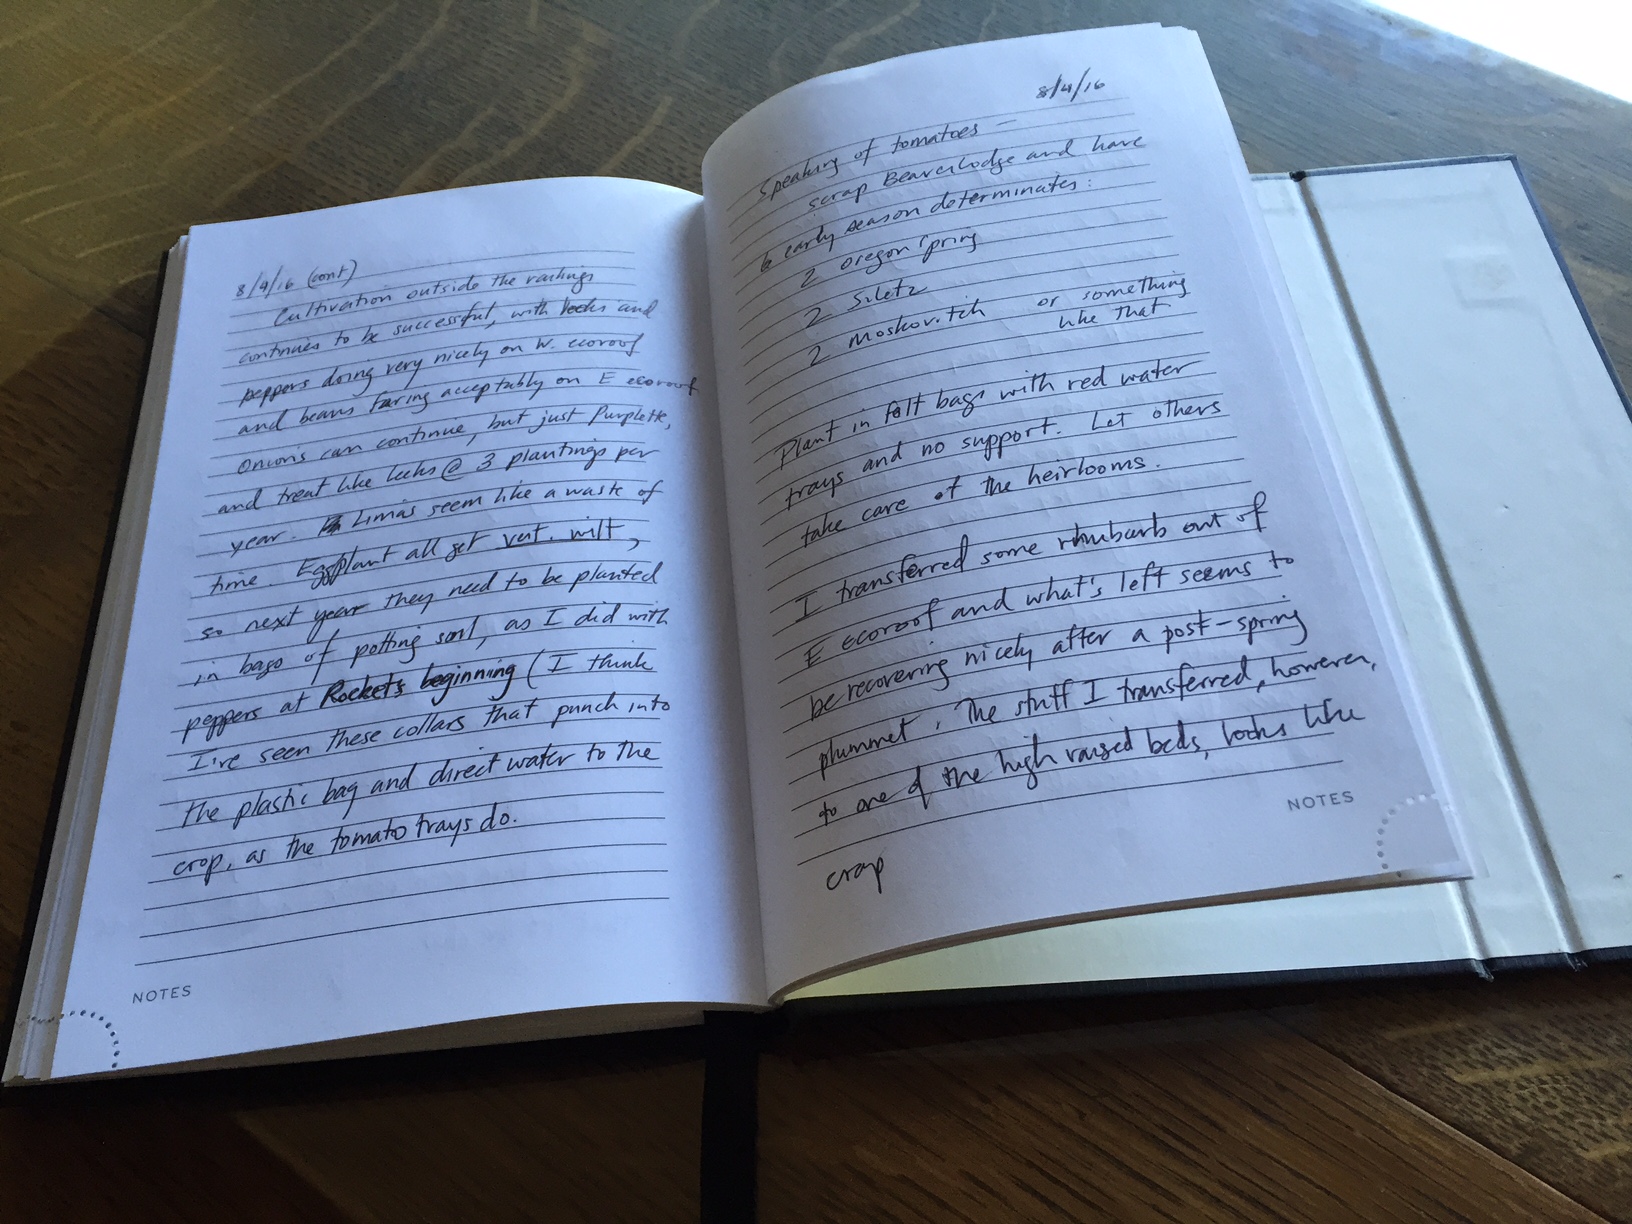 8/4/16 (cont)
Cultivation outside the railings
continues to be successful, with leeks and
peppers doing very nicely on W. ecoroof
and beans faring acceptably on E ecoroof
Onions can continue, but just Purplette,
and treat like leeks @ 3 plantings per
year. Limas seem like a waste of
time. Eggplant all get vert. wilt,
so next year they need to be planted
in bags of potting soil, as I did with
peppers at Rockets beginning (I think
I've seen these collars that punch into
the plastic bag and direct water to the
crop, as the tomato trays do.
NOTES
8/4/16
Speaking of tomatoes —
scrap Beaverlodge and have
6 early season determinates:
2 Oregon Spring
2 Siletz
2 Moskovitch or something
like that
Plant in felt bags with red water
trays and no support. Let others
take care of the heirlooms.
I transferred some rhubarb out of
E ecoroof and what's left seems to
be recovering nicely after a post-spring
plummet. The stuff I transferred, however,
to one of the high raised beds, looks like
crap
NOTES